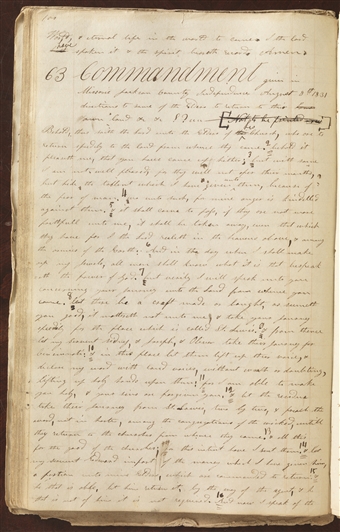 100
& eternal life in the world to come I the Lord
have spoken it & the spirit beareth record Amen
63 Commandment given in
Missouri Jackson County Independence August 8th 1831
directions to some of the Elders to return to their
own land &c &c
Behold thus saith the Lord unto the Elders of this Church, who are to
return speedily to the land from whence they came behold it
pleaseth me, that you have come up hither but with some
I am not well pleased for they will not open their mouths
but hide the tallent which I have given them, because of
the fear of man wo unto such, for mine anger is kindelled
against them & it shall come to pass, if they are not more
faithfull unto me, it shall be taken away, even that which
they have for I the Lord ruleth in the heavens above, & among
the armies of the Earth & in the day when I shall make
up my jewels, all men shall know what it is that bespeak
eth the power of God but verily I will speak unto you
concerning your journey unto the land from whence you
came let there be a craft made or bought, as seemeth
you good, it mattereth not unto me & take your journey
speedily for the place which is called St. Louis & from thence
let my servent Sidney & Joseph & Oliver take their journey for
Cincinnati & in this place let them lift up their voice &
declare my word with loud voices, without wrath or doubting,
lifting up holy hands upon them for I am able to make
you holy, & your sins are forgiven you & let the residue
take their journey from St Louis, two by two, & preach the
word, not in haste, among the congregations of the wicked, untill
they return to the churches from whence they came & all this
for the good of the churches for this intent have I sent them & let
my servent Edward impart of the money which I have given him,
a portion unto mine Elders, which are commanded to return &
he that is able, let him return it by the way of the agent & he
that is not of him it is not required & now I speak of the